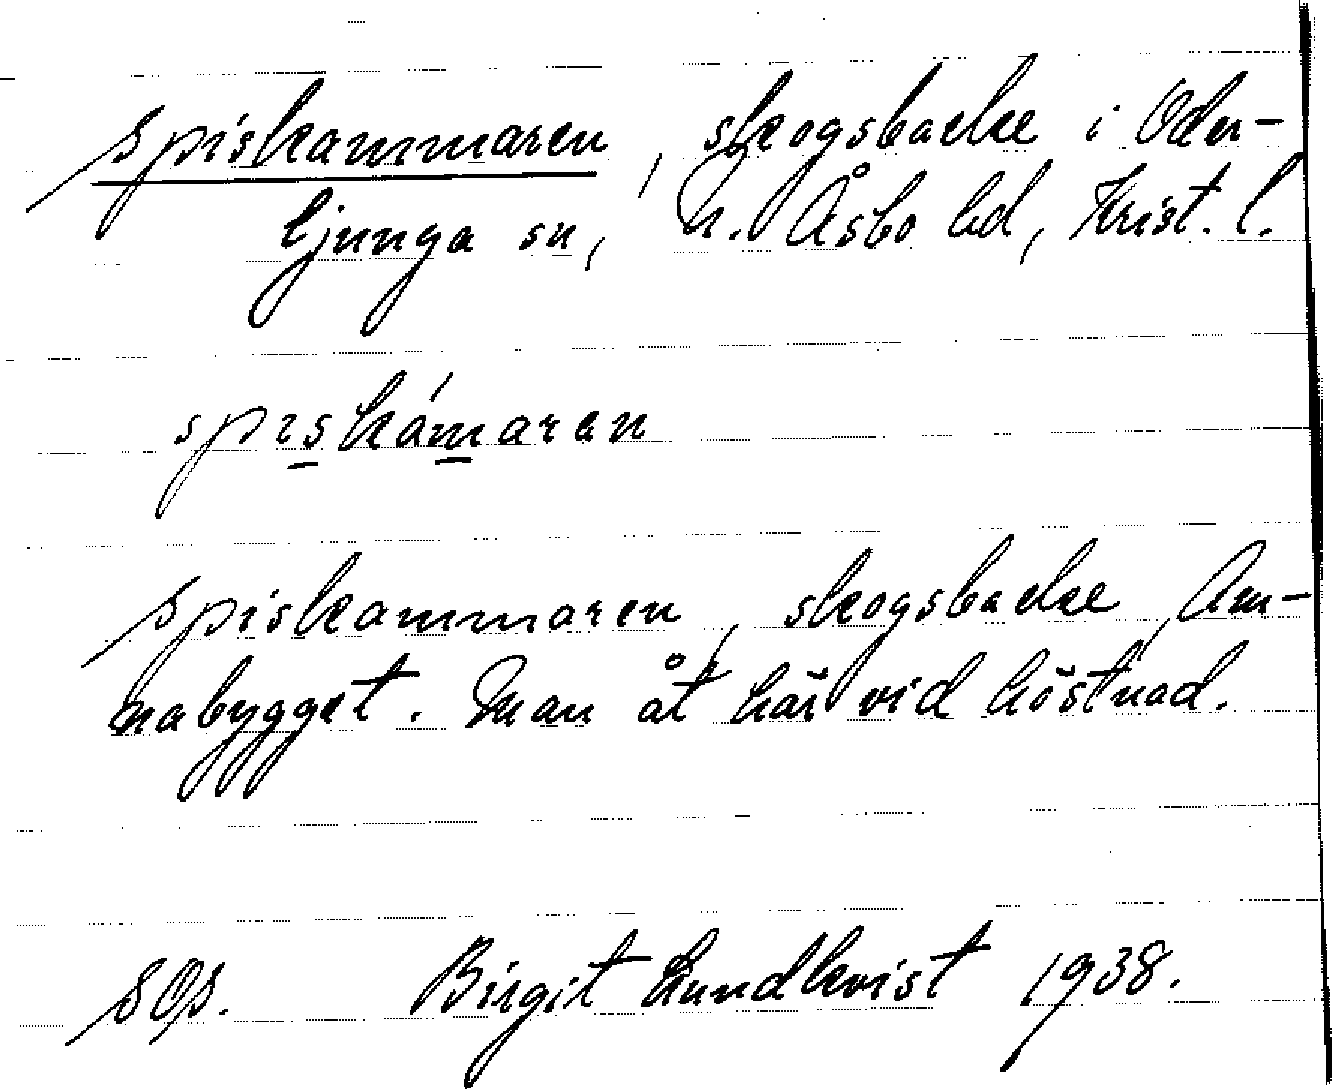 Spiskammaren, skogsbacke i Oder-
ljunga sn, N. Åsbo hd, Krist. l.
spɩskámaren
Spiskammaren, skogsbacke, Am-
nabygget. Man åt här vid höstnad.
Birgit Lundkvist 1938.